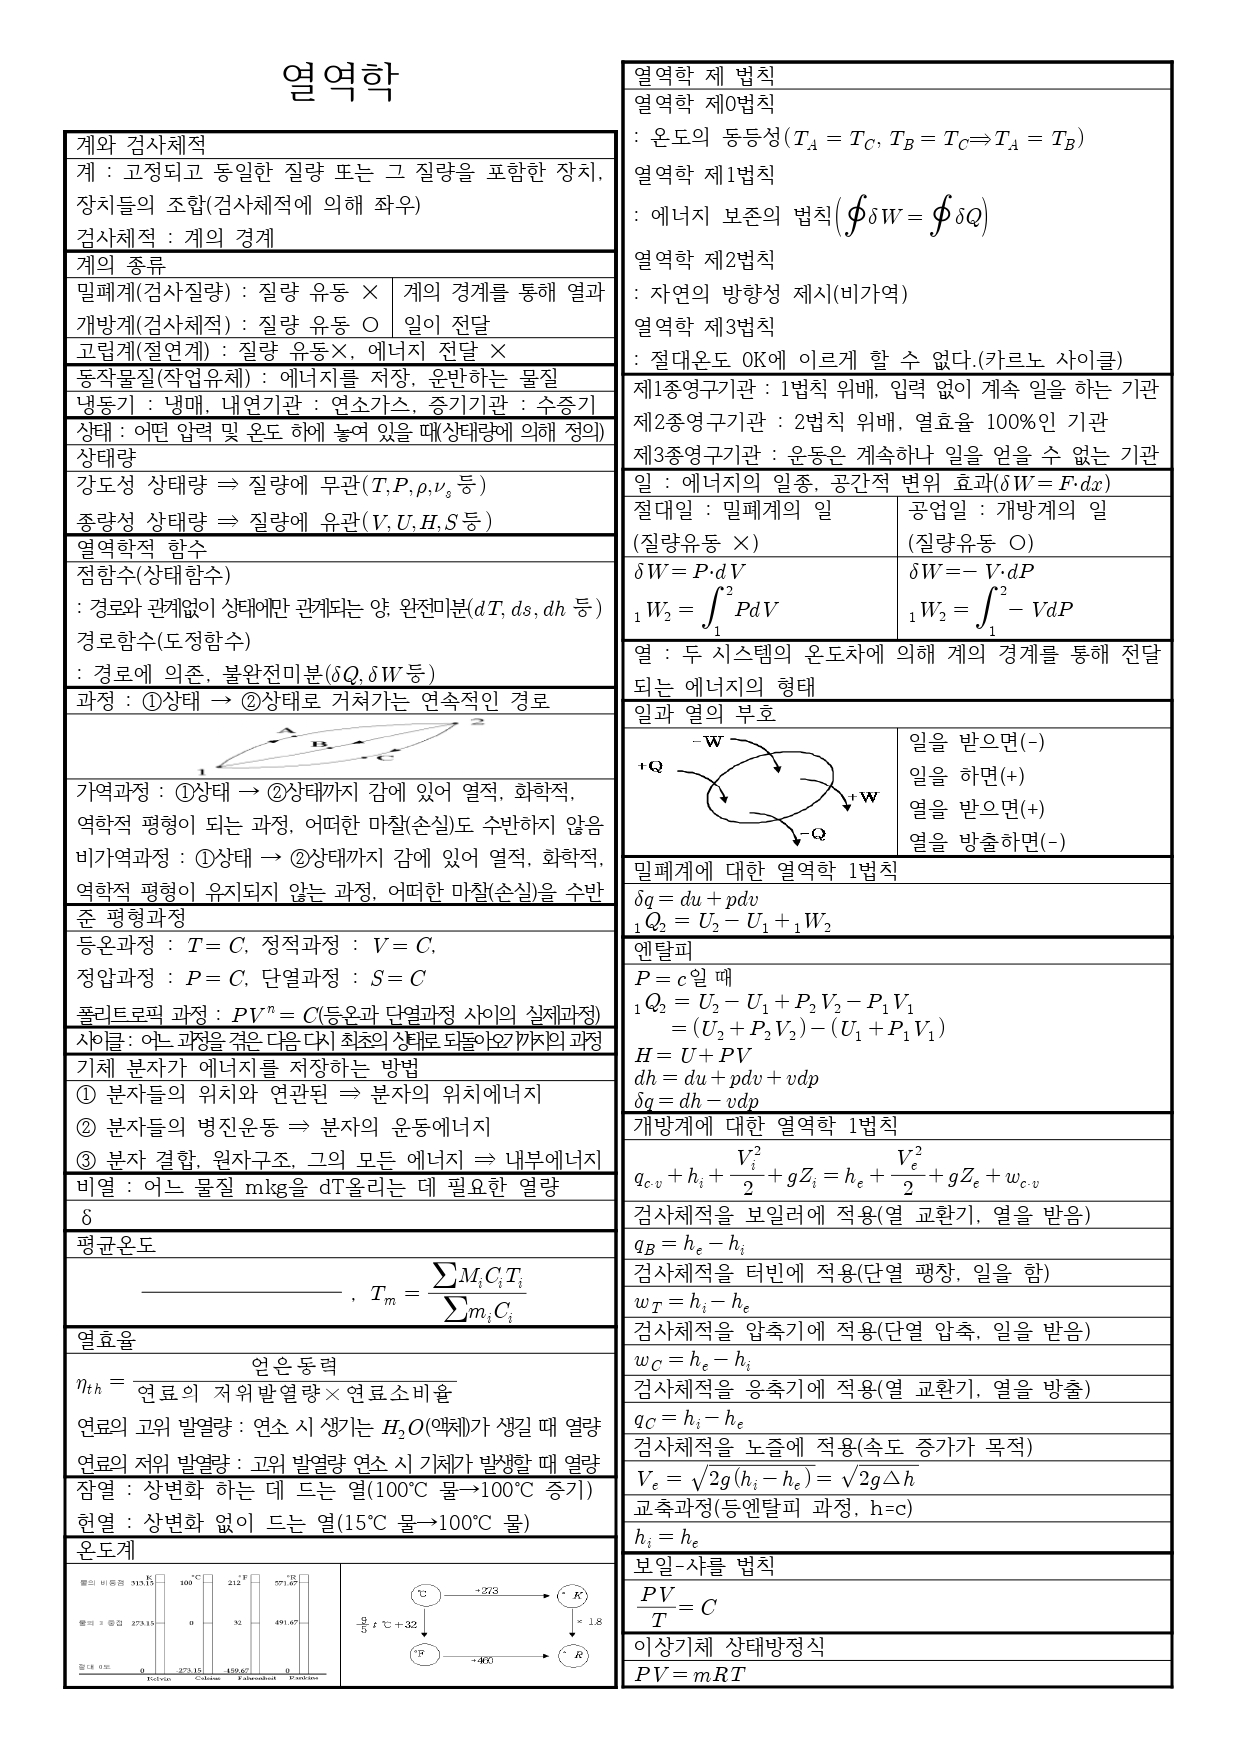 열역학
계와 검사체적
계 : 고정되고 동일한 질량 또는 그 질량을 포함한 장치,
장치들의 조합(검사체적에 의해 좌우)
검사체적 : 계의 경계
계의 종류
밀폐계(검사질량) : 질량 유동 ×
개방계(검사체적) : 질량 유동 ○
계의 경계를 통해 열과
일이 전달
고립계(절연계) : 질량 유동×, 에너지 전달 ×
동작물질(작업유체) : 에너지를 저장, 운반하는 물질
냉동기 : 냉매, 내연기관 : 연소가스, 증기기관 : 수증기
상태 : 어떤 압력 및 온도 하에 놓여 있을 때(상태량에 의해 정의)
상태량
강도성 상태량 ⇒ 질량에 무관(T,P,ρ,ν_s 등)
종량성 상태량 ⇒ 질량에 유관(V,U,H,S 등)
열역학적 함수
점함수(상태함수)
: 경로와 관계없이 상태에만 관계되는 양, 완전미분(dT, ds, dh 등)
경로함수(도정함수)
: 경로에 의존, 불완전미분(δQ, δW 등)
과정 : ①상태 → ②상태로 거쳐가는 연속적인 경로
1 A B C 2
가역과정 : ①상태 → ②상태까지 감에 있어 열적, 화학적,
역학적 평형이 되는 과정, 어떠한 마찰(손실)도 수반하지 않음
비가역과정 : ①상태 → ②상태까지 감에 있어 열적, 화학적,
역학적 평형이 유지되지 않는 과정, 어떠한 마찰(손실)을 수반
준 평형과정
등온과정 : T = C, 정적과정 : V = C,
정압과정 : P = C, 단열과정 : S = C
폴리트로픽 과정 : PV^n = C(등온과 단열과정 사이의 실제과정)
사이클 : 어느 과정을 겪은 다음 다시 최초의 상태로 되돌아오기까지의 과정
기체 분자가 에너지를 저장하는 방법
① 분자들의 위치와 연관된 ⇒ 분자의 위치에너지
② 분자들의 병진운동 ⇒ 분자의 운동에너지
③ 분자 결합, 원자구조, 그의 모든 에너지 ⇒ 내부에너지
비열 : 어느 물질 mkg을 dT올리는 데 필요한 열량
δ
평균온도
, T_m = ∑M_iC_iT_i / ∑m_iC_i
열효율
η_th = 얻은동력 / 연료의 저위발열량×연료소비율
연료의 고위 발열량 : 연소 시 생기는 H_2O(액체)가 생길 때 열량
연료의 저위 발열량 : 고위 발열량 연소 시 기체가 발생할 때 열량
잠열 : 상변화 하는 데 드는 열(100℃ 물→100℃ 증기)
헌열 : 상변화 없이 드는 열(15℃ 물→100℃ 물)
온도계
K ℃ ℉ °R
물의 비등점 313.15 100 212 571.67
물의 3 중점 273.15 0 32 491.67
절대 0도 0 -273.15 -459.67 0
Kelvin Celsius Fahrenheit Rankine
℃ +273 ° K
9/5 t ℃+32 × 1.8
℉ +460 ° R
열역학 제 법칙
열역학 제0법칙
: 온도의 동등성(T_A = T_C, T_B = T_C⇒T_A = T_B)
열역학 제1법칙
: 에너지 보존의 법칙(∮δW = ∮δQ)
열역학 제2법칙
: 자연의 방향성 제시(비가역)
열역학 제3법칙
: 절대온도 0K에 이르게 할 수 없다.(카르노 사이클)
제1종영구기관 : 1법칙 위배, 입력 없이 계속 일을 하는 기관
제2종영구기관 : 2법칙 위배, 열효율 100%인 기관
제3종영구기관 : 운동은 계속하나 일을 얻을 수 없는 기관
일 : 에너지의 일종, 공간적 변위 효과(δW = F·dx)
절대일 : 밀폐계의 일
(질량유동 ×)
공업일 : 개방계의 일
(질량유동 ○)
δW = P·dV
_1W_2 = ∫_1^2 PdV
δW = − V·dP
_1W_2 = ∫_1^2 − VdP
열 : 두 시스템의 온도차에 의해 계의 경계를 통해 전달
되는 에너지의 형태
일과 열의 부호
-W
+Q
+W
-Q
일을 받으면(-)
일을 하면(+)
열을 받으면(+)
열을 방출하면(-)
밀폐계에 대한 열역학 1법칙
δq = du + pdv
_1Q_2 = U_2 − U_1 + _1W_2
엔탈피
P = c일 때
_1Q_2 = U_2 − U_1 + P_2V_2 − P_1V_1
= (U_2 + P_2V_2) − (U_1 + P_1V_1)
H = U + PV
dh = du + pdv + vdp
δq = dh − vdp
개방계에 대한 열역학 1법칙
q_c·v + h_i + V_i^2/2 + gZ_i = h_e + V_e^2/2 + gZ_e + w_c·v
검사체적을 보일러에 적용(열 교환기, 열을 받음)
q_B = h_e − h_i
검사체적을 터빈에 적용(단열 팽창, 일을 함)
w_T = h_i − h_e
검사체적을 압축기에 적용(단열 압축, 일을 받음)
w_C = h_e − h_i
검사체적을 응축기에 적용(열 교환기, 열을 방출)
q_C = h_i − h_e
검사체적을 노즐에 적용(속도 증가가 목적)
V_e = √2g(h_i − h_e) = √2g△h
교축과정(등엔탈피 과정, h=c)
h_i = h_e
보일-샤를 법칙
PV/T = C
이상기체 상태방정식
PV = mRT